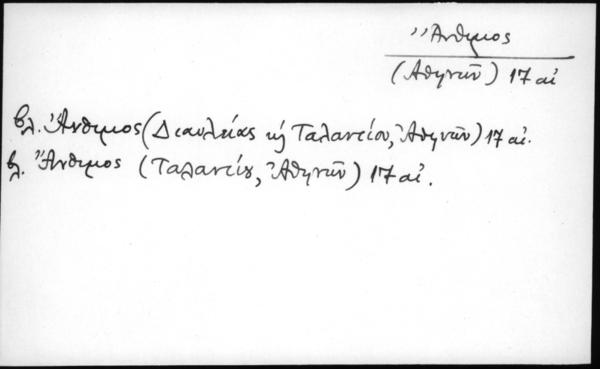 Ἄνθιμος
(Ἀθηνῶν) 17 αἰ
βλ. Ἄνθιμος (Διαυλείας κ̀ Ταλαντίου, Ἀθηνῶν) 17 αἰ.
βλ. Ἄνθιμος (Ταλαντίου, Ἀθηνῶν) 17 αἰ.